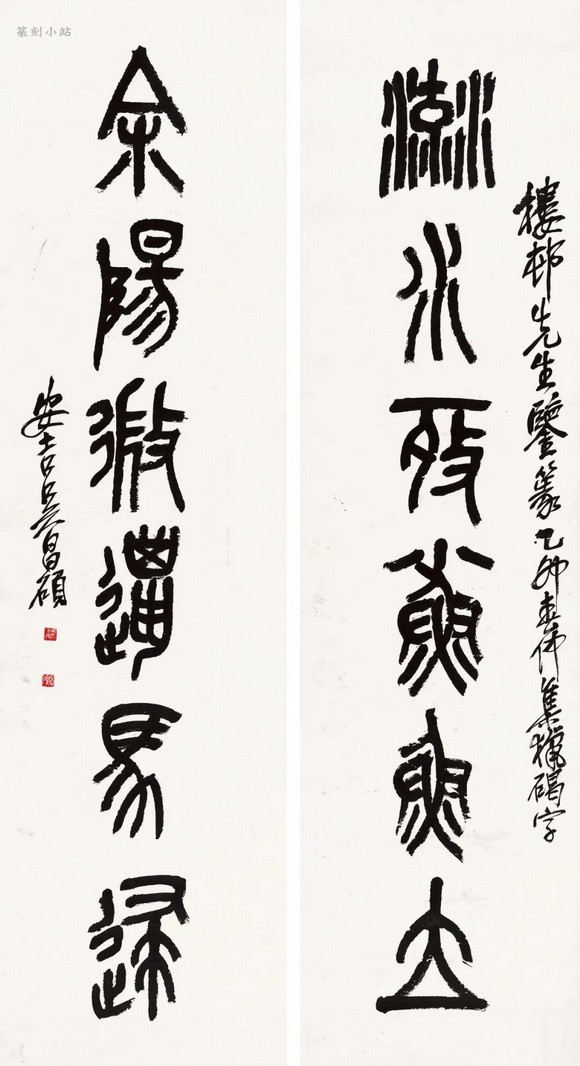 篆刻小站
樓邨先生鑒篆乙卯春仲集獵碣字
流水殹魚立
余陽微馬歸
安吉吳昌碩